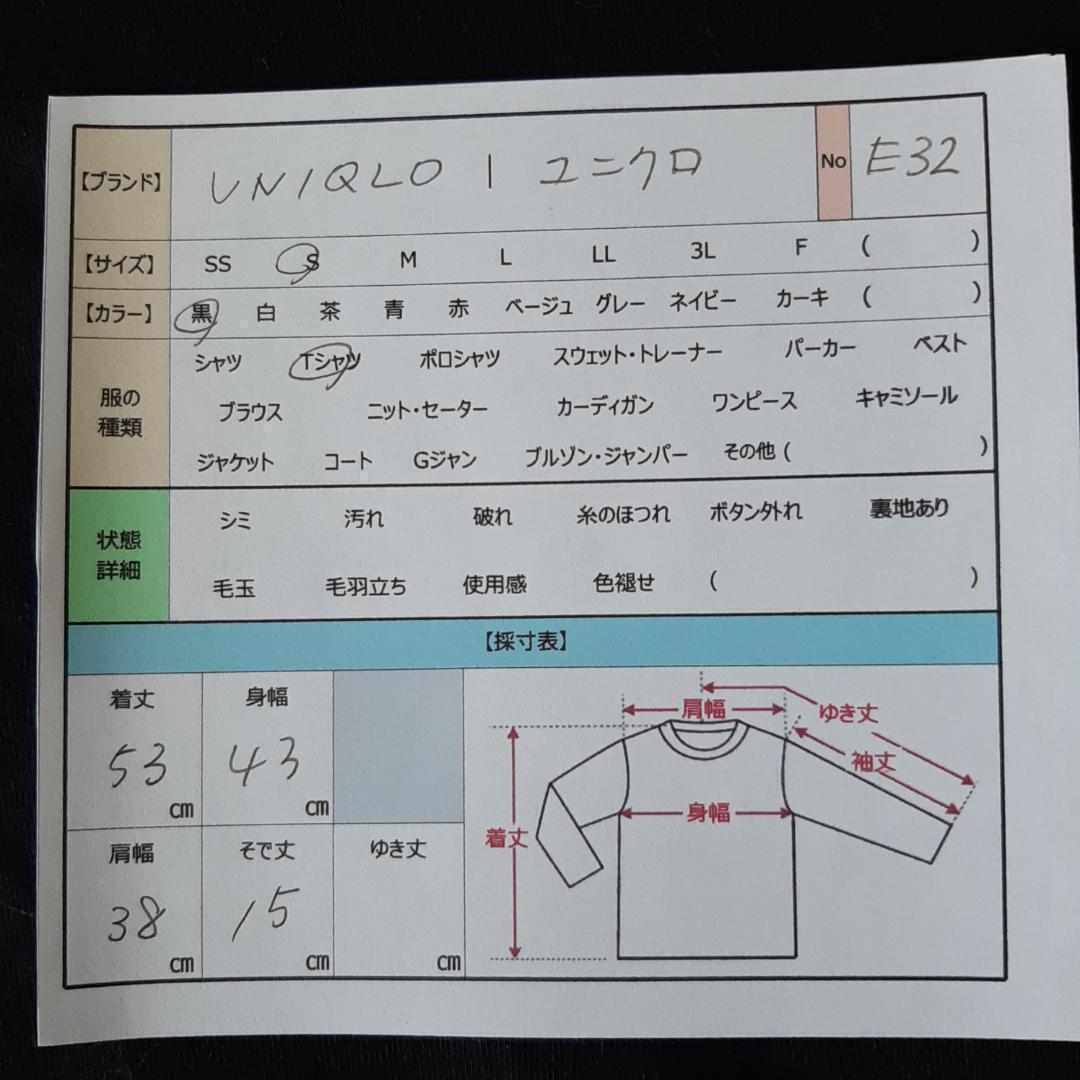 【ブランド】 UNIQLO | ユニクロ No E32
【サイズ】 SS S M L LL 3L F ( )
【カラー】 黒 白 茶 青 赤 ベージュ グレー ネイビー カーキ ( )
服の種類
シャツ Tシャツ ポロシャツ スウェット・トレーナー パーカー ベスト
ブラウス ニット・セーター カーディガン ワンピース キャミソール
ジャケット コート Gジャン ブルゾン・ジャンパー その他 ( )
状態詳細
シミ 汚れ 破れ 糸のほつれ ボタン外れ 裏地あり
毛玉 毛羽立ち 使用感 色褪せ ( )
【採寸表】
着丈 身幅
53 cm 43 cm
肩幅 そで丈 ゆき丈
38 cm 15 cm cm
肩幅 ゆき丈
袖丈
身幅
着丈